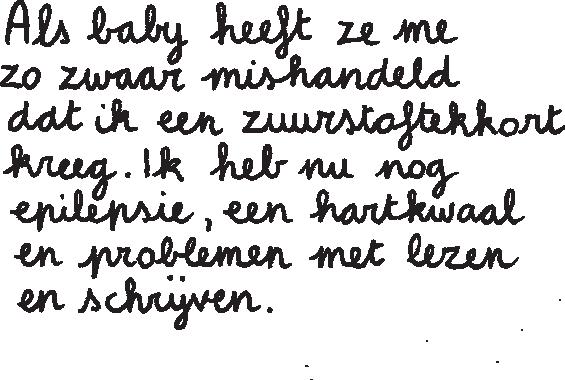 Als baby heeft ze me
zo zwaar mishandeld
dat ik een zuurstoftekkort
kreeg. Ik heb nu nog
epilepsie, een hartkwaal
en problemen met lezen
en schrijven.